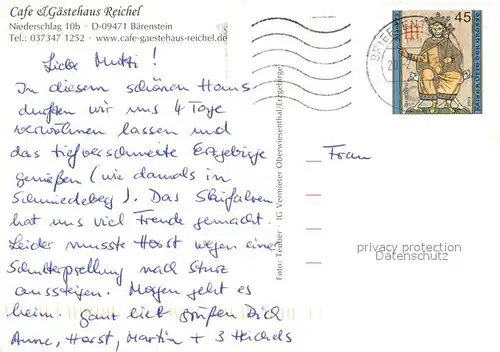 Cafe & Gästehaus Reichel
Niederschlag 10b · D-09471 Bärenstein
Tel.: 037347 1252 · www.cafe-gaestehaus-reichel.de
Liebe Mutti!
In diesem schönen Haus
durften wir uns 4 Tage
verwöhnen lassen und
das tiefverschneite Erzgebirge
genießen (wie damals in
Schmiedeberg). Das Skifahren
hat uns viel Freude gemacht.
Leider musste Horst wegen einer
Schulterprellung nach Sturz
aussteigen. Morgen geht es
heim. Ganz lieb grüßen Dich
Anne, Horst, Martin + 3 Michels
Foto: Trauber · IG Vermieter Oberwiesenthal/Erzgebirge
45
BRIEF
Frau
privacy protection
Datenschutz